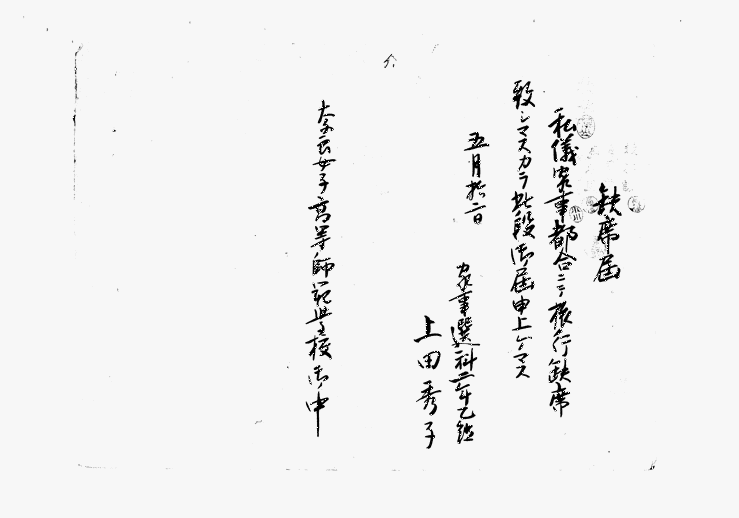 缺席届
私儀家事都合ニテ旅行缺席
致シマスカラ此段御届申上ゲマス
五月拾二日
家事選科二年乙組
上田秀子
奈良女子高等師範學校御中